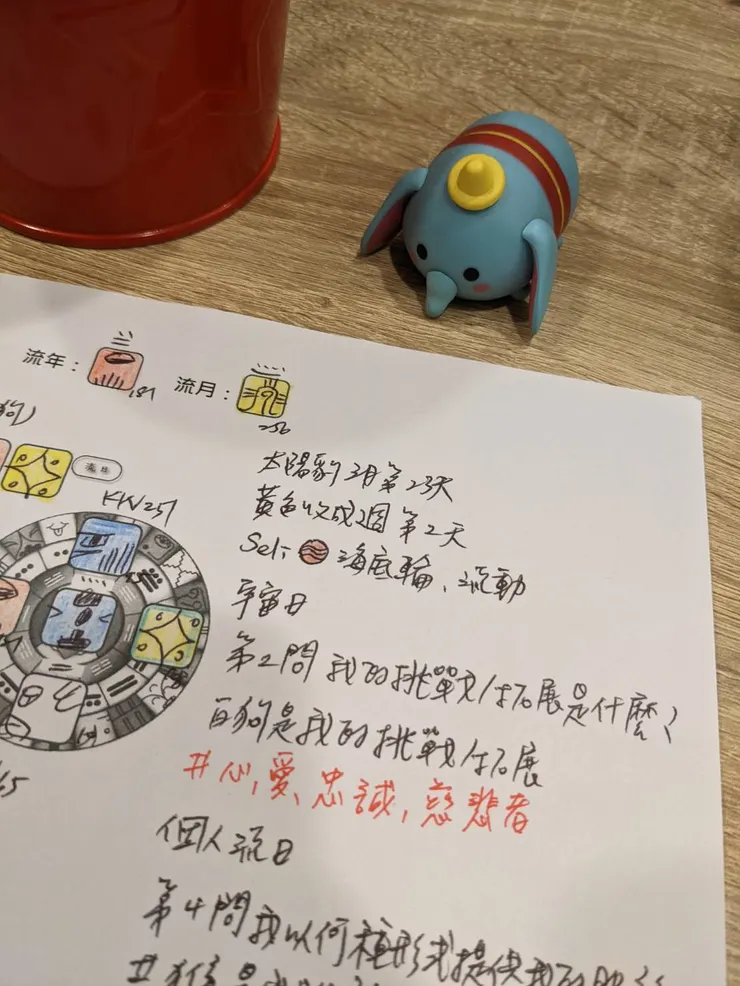 流年： 流月：
狗)
KIN251
太陽豹3月第23天
黃色收成週第2天
Seli 海底輪、流動
宇宙日
第2問 我的挑戰/拓展是什麼？
白狗是我的挑戰/拓展
#心,愛,忠誠,慈悲者
個人流日
第4問我以何種形式提供我的